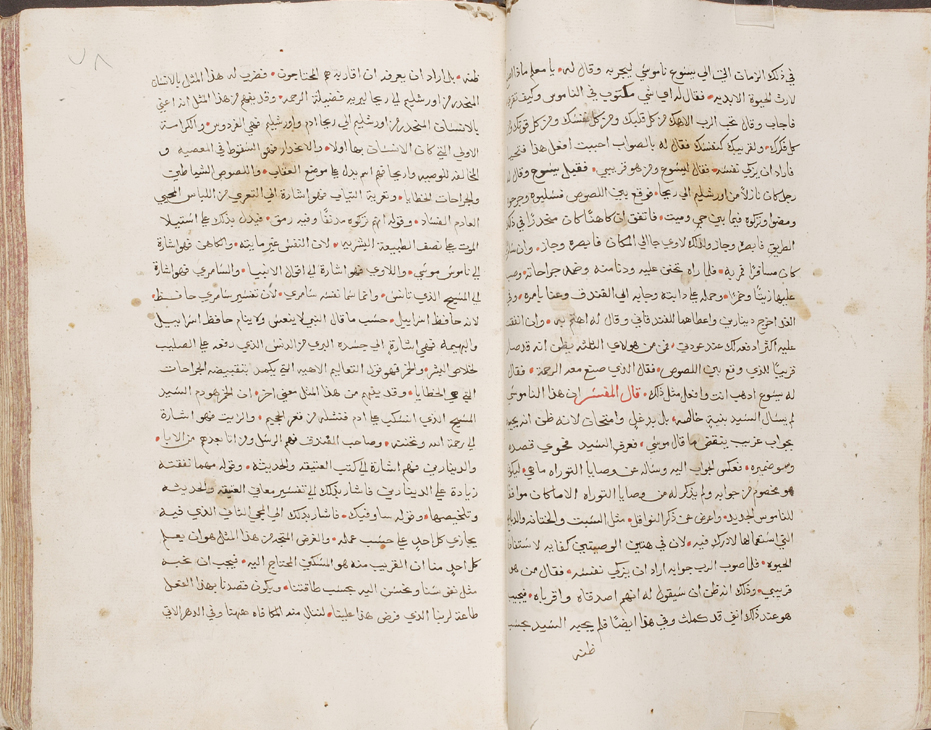 في ذلك الزمان اتى الي يسوع ناموسي ليجربه وقال له يا معلم ماذا
لارث الحيوة الابديه فقال له اي شي مكتوب في الناموس وكيف تقرا
فاجاب وقال تحب الرب الاهك من كل قلبك ومن كل نفسك ومن كل قوتك
كل فكرك ولقريبك كنفسك فقال له بالصواب اجبت افعل هذا فتحيا
فاراد ان يزكي نفسه فقال ليسوع ومن هو قريبي فقبل يسوع وقال
رجل كان نازلا من اورشليم الي ريحا فوقع بين اللصوص فسلبوه وجرحوه
ومضوا وتركوه فيما بين حي وميت فاتفق ان كاهنا كان منحدرا في ذلك
الطريق فابصره وجاز وكذلك لاوي جا الي المكان فابصره وجاز وان
كان مسافرا قريه فلما راه تحنن عليه ودنا منه وضمد جراحاته
عليها زيتا وخمرا وحمله علي دابته وجابه الي الفندق وعنا بامره وفي
الغد اخرج دينارين واعطاهما للفندقاني وقال له اهتم به وان انفقت
عليه اكثر ادفعه لك عند عودتي فمن من هولاي الثلثه يظن انه قد صار
قريبا للذي وقع بين اللصوص فقال الذي صنع معه الرحمة فقال
له يسوع اذهب انت وافعل مثل ذلك قال المفسر ان هذا الناموسي
لم يسال السيد بنية خالصه بل بدغل وامتحان لانه ظن انه
بجواب غريب ينقض ما قال موسي فعرف السيد فحوي قصده
وسو ضميره فعكس الجواب اليه وساله عن وصايا التوراه ما هي ليكون
هو مخصوم من جوابه ولم يذكر له من وصايا التوراه الا ما كان موافقا
للناموس الجديد واعرض عن ذكر النوافل مثل السبت والختانه والذبايح
التي استعمالها لا درك فيه لان في هتين الوصيتين كفايه لاستقامة
الحيوه فلما صوب الرب جوابه اراد ان يزكي نفسه فقال من هو
قريبي وذلك انه ظن ان سيقول له انهم اصدقاه واقرباه فيجيب
هو عند ذلك انني قد كملت وفي هذا ايضا فلم يجبه السيد بحسب
ظنه
٧٨
ظنه بل اراد ان يعرفه ان اقاربه هم المحتاجون فضرب له هذا المثل بالانسان
المنحدر من اورشليم الي ريحا ليريه فضيلة الرحمه وقد يفهم من هذا المثل انه اعني
بالانسان المنحدر من اورشليم الي ريحا ادم واورشليم فهي الفردوس والكرامة
الاولي التي كان الانسان بها اولا والانحدار فهو السقوط في المعصيه و
المخالفه للوصيه واريحا فهو اسم يدل علي موضع العقاب واللصوص الشياطين
والجراحات الخطايا وتعرية الثياب فهو اشارة الي التعري من اللباس المحيي
العادم الفساد وقوله انهم تركوه مدنفا وفيه رمق فيدل بذلك علي استيلا
الموت علي نصف الطبيعة البشريه لان النفس غير مايته والكاهن فهو اشارة
الي ناموس موسي واللاوي فهو اشارة الي اقوال الانبيا والسامري فهو اشارة
الي المسيح الذي تانس وانما سما نفسه سامري لان تفسير سامري حافظ
لانه حافظ اسراييل حسب ما قال النبي لا ينعس ولا ينام حافظ اسراييل
والبهيمه فهي اشارة الي جسده البري من الدنس الذي رفعه علي الصليب
لخلاص البشر والخمر فهو قول التعاليم الالهيه التي يكمل بتقبيضه الجراحات
التي هي الخطايا وقد يفهم من هذا المثل معني اخر ان الخمر هو دم السيد
المسيح الذي انسكب علي ادم فنشله من قعر الجحيم والزيت فهو اشارة
الي رحمة الله وتحننه وصاحب الفندق فهم الرسل ومن اتا بعدهم من الابا
والدينارين فهم اشارة الي كتب العتيقه والحديثه وقوله مهما نفقته
زيادة علي الدينارين فاشار بذلك الي تفسير معاني العتيقه والحديثه
وتلخيصها وقوله ساوفيك فاشار بذلك الي المجي الثاني الذي فيه
يجازي كل احد علي حسب عمله والغرض المتجه من هذا المثل هو ان يعلم
كل احد منا ان القريب منه هو المسكين المحتاج اليه فيجب ان نحبه
مثل نفسنا ونحسن اليه بحسب طاقتنا ويكون قصدنا بهذا الفعل
طاعة لربنا الذي فرض هذا علينا لننال منه المكافاه ههنا وفي الدهر الاتي